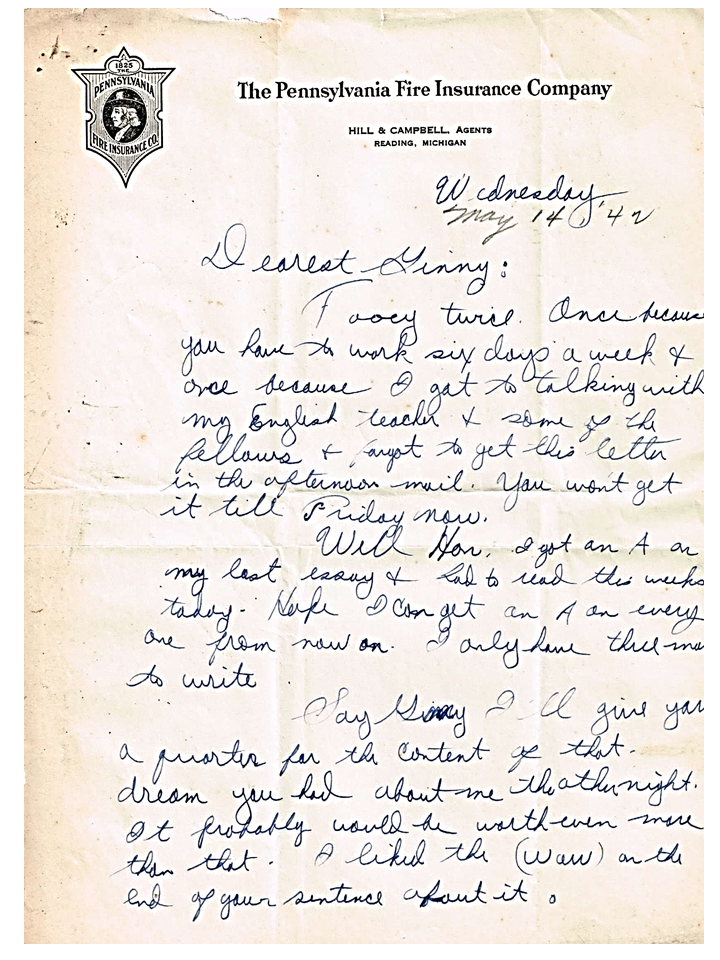 1825
THE
PENNSYLVANIA
FIRE INSURANCE CO.
The Pennsylvania Fire Insurance Company
HILL & CAMPBELL, AGENTS
READING, MICHIGAN
Wednesday,
May 14 '42
Dearest Ginny:
Fooey twice. Once because
you have to work six days a week &
once because I got to talking with
my English teacher & some of the
fellows & forgot to get this letter
in the afternoon mail. You wont get
it till Friday now.
Well Hon, I got an A on
my last essay & had to read this weeks
today. Hope I can get an A on every
one from now on. I only have three mo
to write
Say Ginny I'll give you
a quarter for the content of that
dream you had about me the other night.
It probably would be worth even more
than that. I liked the (Wow) on the
end of your sentence about it.